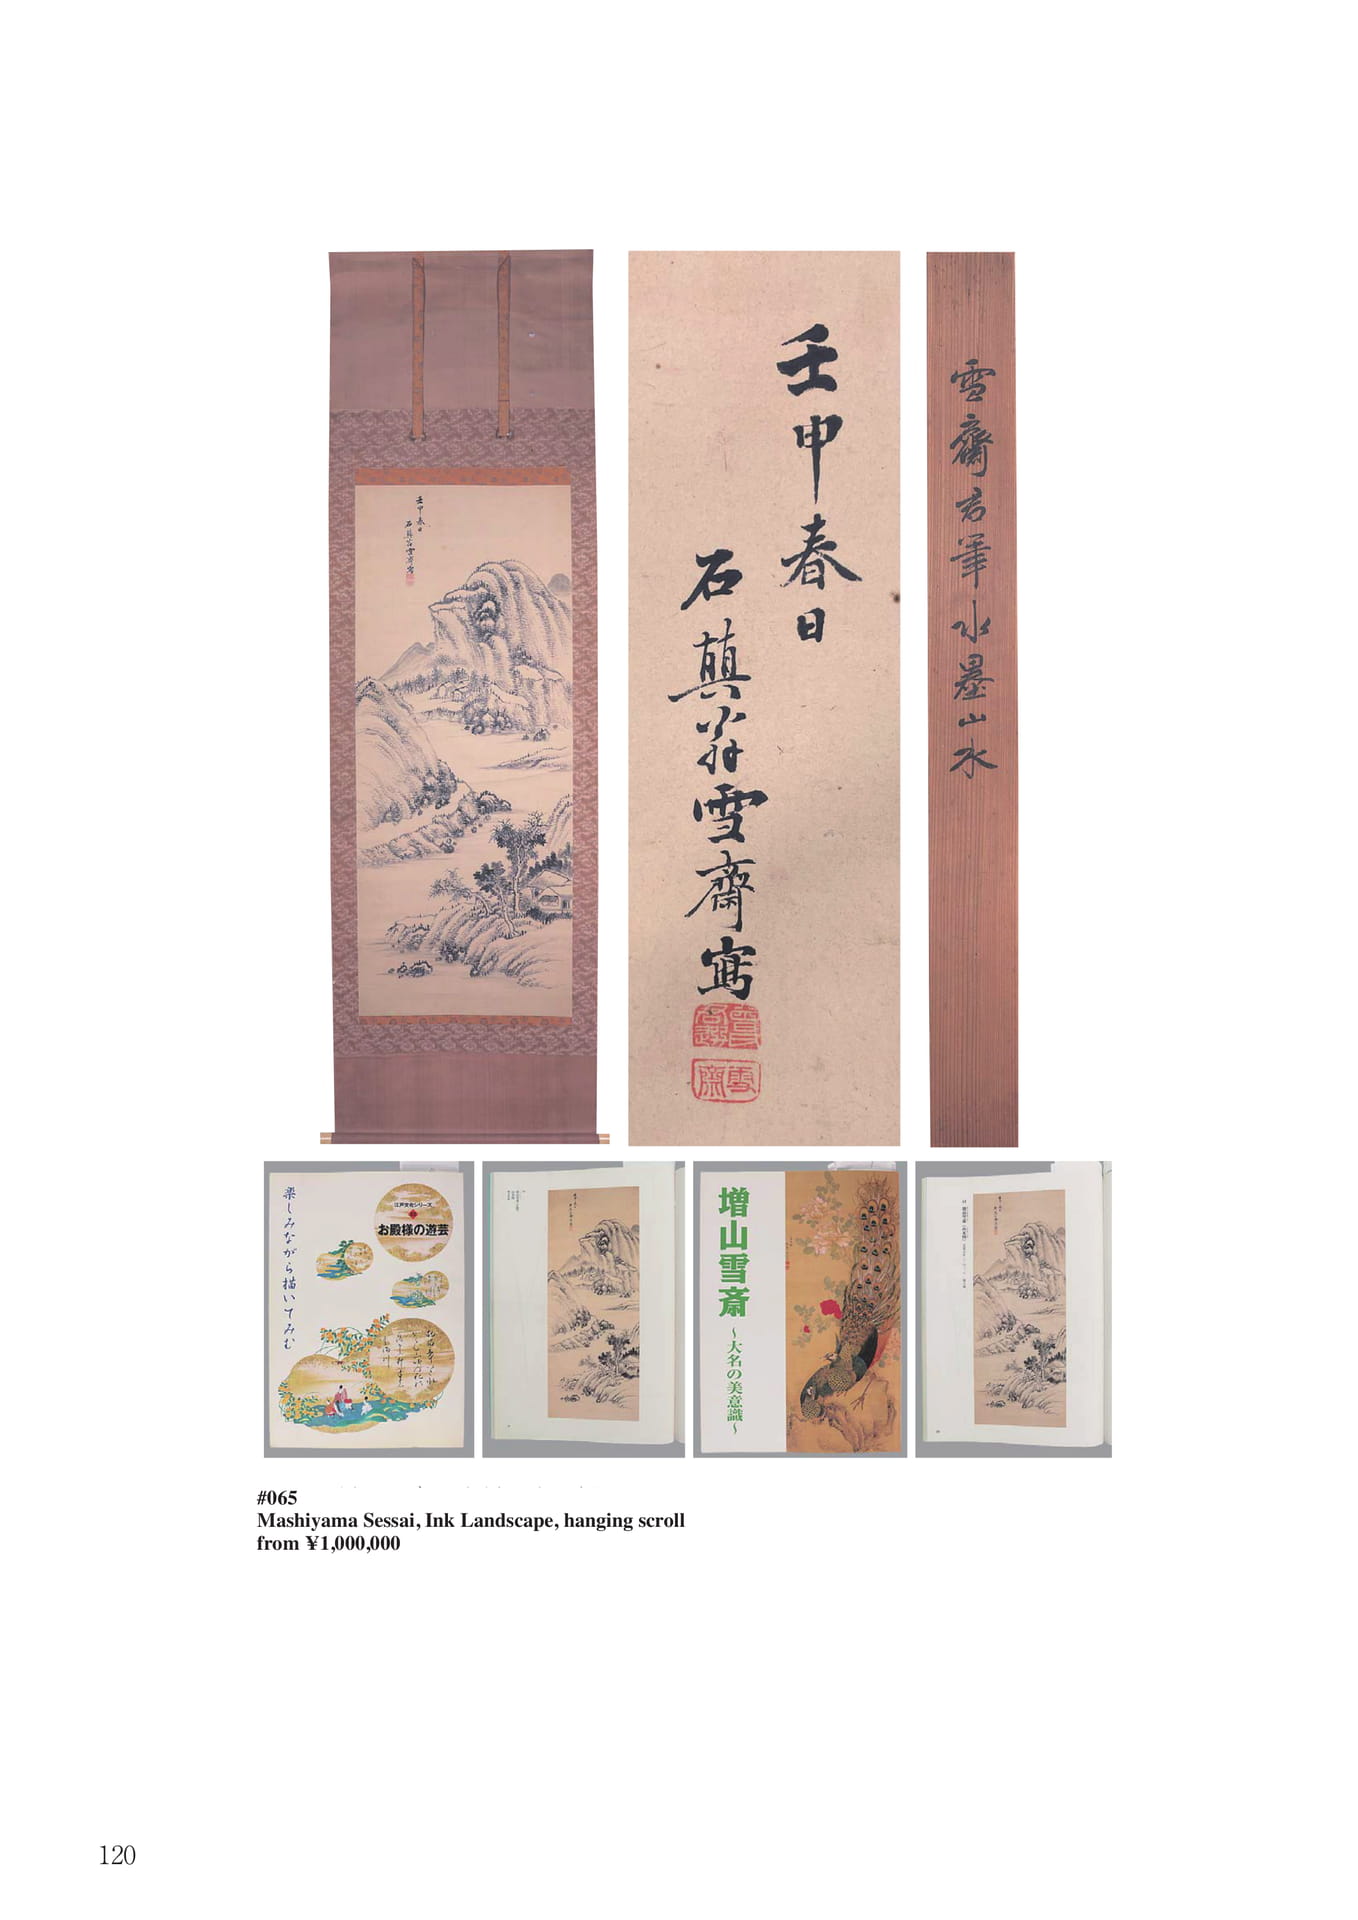 壬申春日
石顛道人雪齋寫
雪齋
雪齋君筆水墨山水
楽しみながら描いてみむ
江戸文化シリーズ
お殿様の遊芸
増山雪斎
~大名の美意識~
#065
Mashiyama Sessai, Ink Landscape, hanging scroll
from ¥1,000,000
120